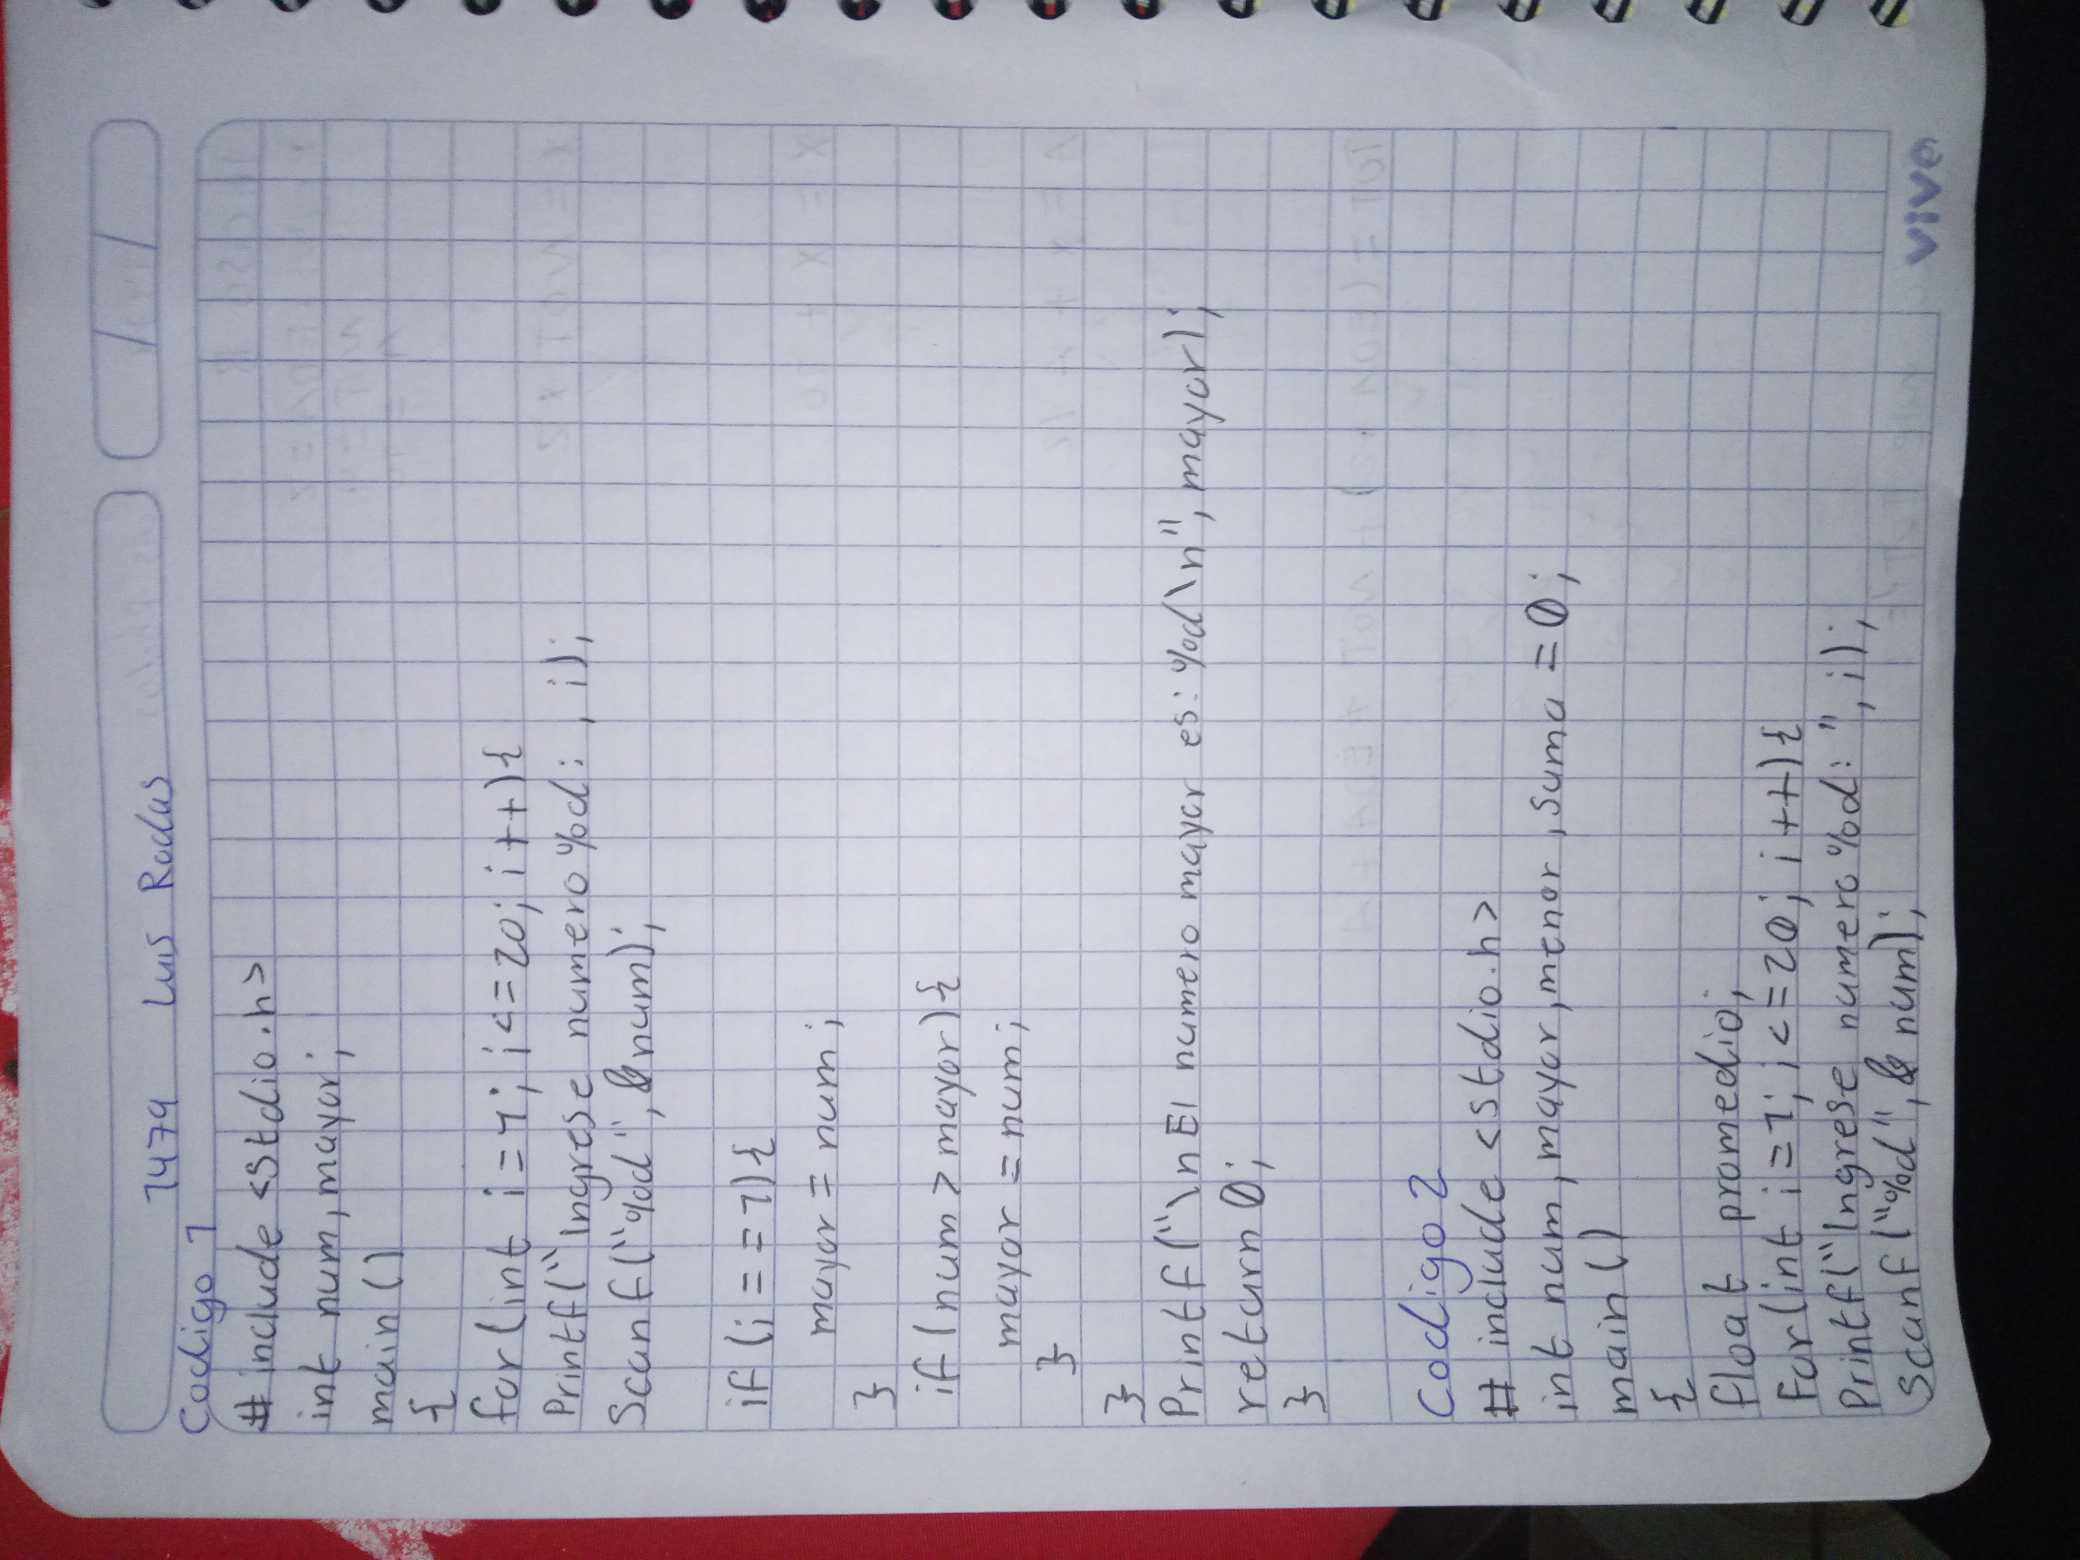 1479 Luis Rodas
Codigo 1
# include <stdio.h>
int num, mayor;
main ()
{
for (int i=1; i<=20; i++) {
Printf("Ingrese numero %d: , i);
Scanf("%d", & num);
if (i == 1) {
mayor = num;
}
if (num > mayor) {
mayor = num;
}
}
Printf ("\nEl numero mayor es: %d\n", mayor);
return 0;
}
Codigo 2
# include <stdio.h>
int num, mayor, menor, Suma = 0;
main ()
{
float promedio;
For (int i=1; i<=20; i++) {
Printf("Ingrese numero %d: ", i);
Scanf ("%d", & num);
vivo